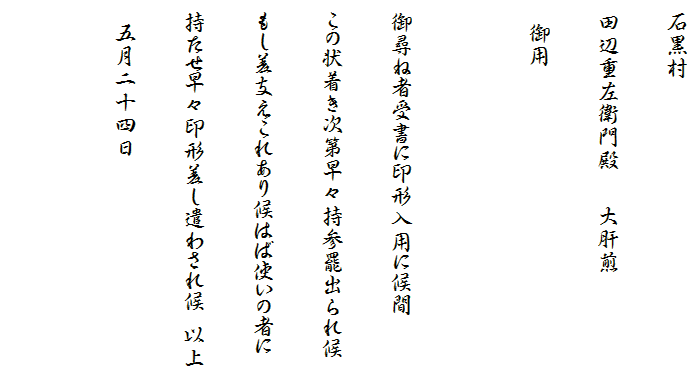 石黒村
田辺重左衛門殿　大肝煎
御用
御尋ね者受書に印形入用に候間
この状着き次第早々持参罷出られ候
もし差支えこれあり候はば使いの者に
持たせ早々印形差し遣わされ候　以上
五月二十四日